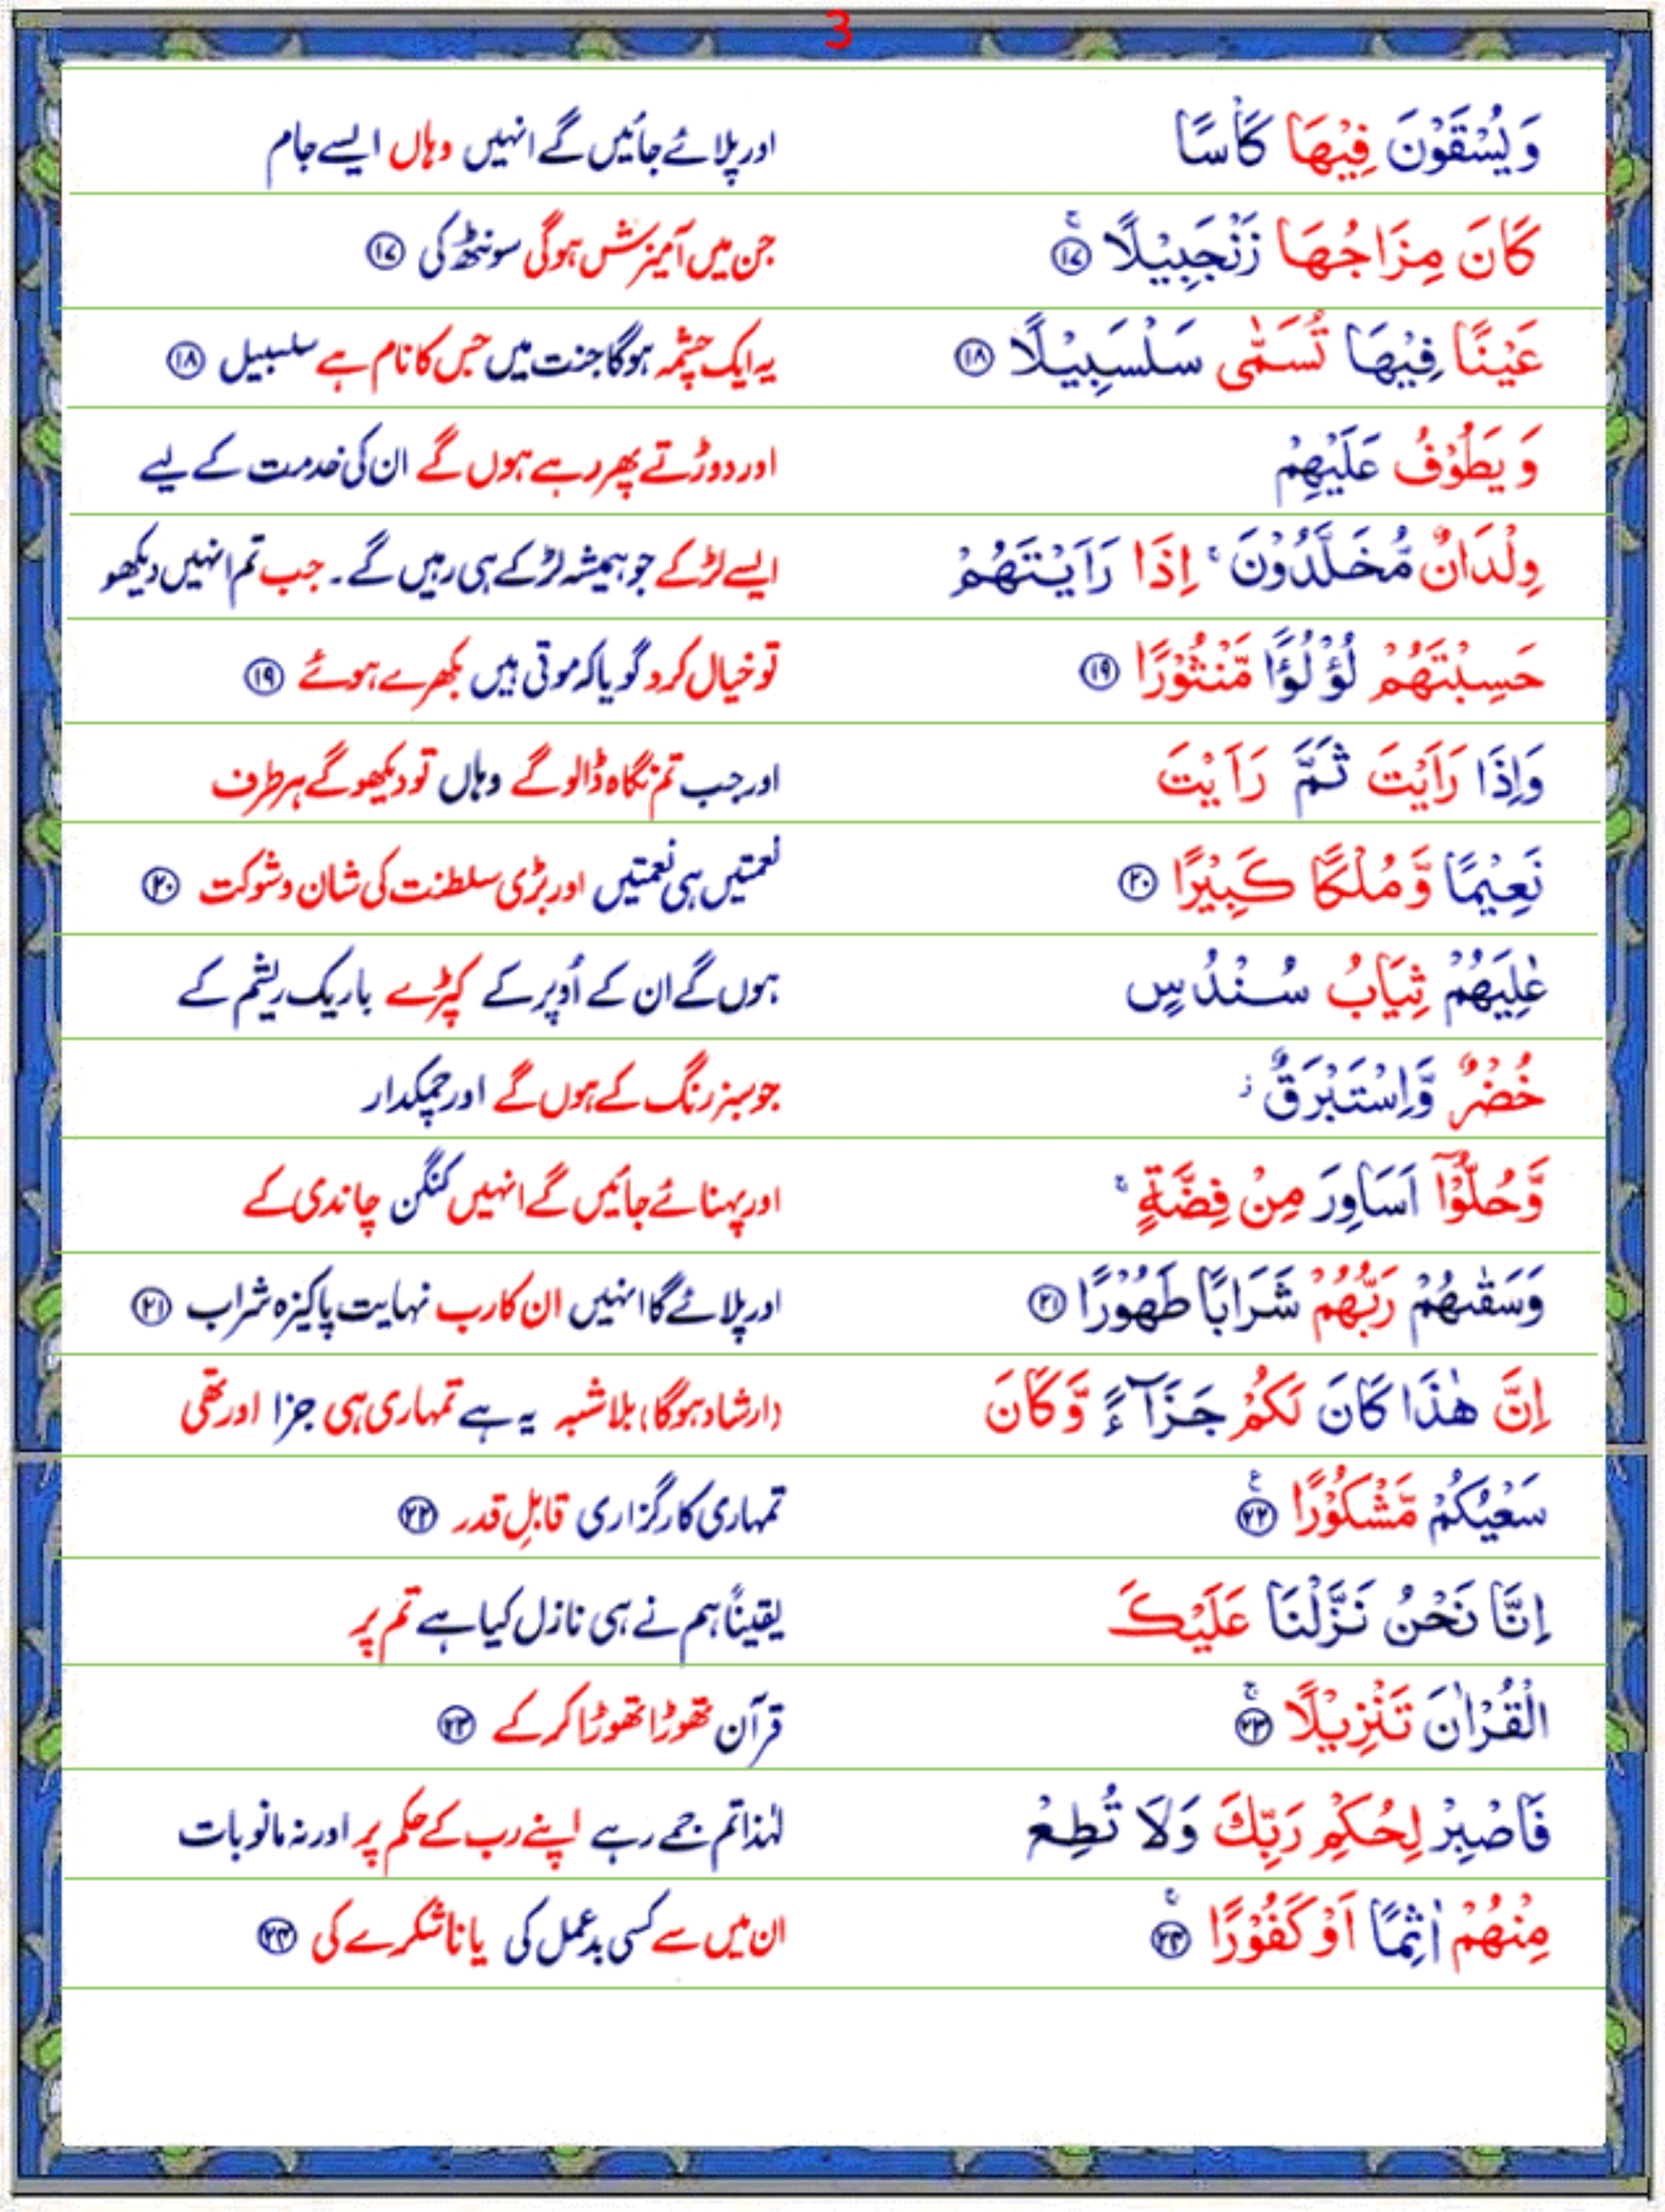 3
وَيُسْقَوْنَ فِيْهَا كَاْسًا اور پلائے جائیں گے انہیں وہاں ایسے جام
كَانَ مِزَاجُهَا زَنْجَبِيْلًا ۚ ﴿۱۷﴾ جن میں آمیزش ہوگی سونٹھ کی ﴿۱۷﴾
عَيْنًا فِيْهَا تُسَمّٰى سَلْسَبِيْلًا ﴿۱۸﴾ یہ ایک چشمہ ہوگا جنت میں جس کا نام ہے سلسبیل ﴿۱۸﴾
وَيَطُوْفُ عَلَيْهِمْ اور دوڑتے پھر رہے ہوں گے ان کی خدمت کے لیے
وِلْدَانٌ مُّخَلَّدُوْنَ ۚ اِذَا رَاَيْتَهُمْ ایسے لڑکے جو ہمیشہ لڑکے ہی رہیں گے۔ جب تم انہیں دیکھو
حَسِبْتَهُمْ لُؤْلُؤًا مَّنْثُوْرًا ﴿۱۹﴾ تو خیال کرو گویا کہ موتی ہیں بکھرے ہوئے ﴿۱۹﴾
وَاِذَا رَاَيْتَ ثَمَّ رَاَيْتَ اور جب تم نگاہ ڈالو گے وہاں تو دیکھو گے ہر طرف
نَعِيْمًا وَّمُلْكًا كَبِيْرًا ﴿۲۰﴾ نعمتیں ہی نعمتیں اور بڑی سلطنت کی شان و شوکت ﴿۲۰﴾
عٰلِيَهُمْ ثِيَابُ سُنْدُسٍ ہوں گے ان کے اُوپر کے کپڑے باریک ریشم کے
خُضْرٌ وَّاِسْتَبْرَقٌ ؗ جو سبز رنگ کے ہوں گے اور چمکدار
وَّحُلُّوْٓا اَسَاوِرَ مِنْ فِضَّةٍ ۚ اور پہنائے جائیں گے انہیں کنگن چاندی کے
وَسَقٰىهُمْ رَبُّهُمْ شَرَابًا طَهُوْرًا ﴿۲۱﴾ اور پلائے گا انہیں ان کا رب نہایت پاکیزہ شراب ﴿۲۱﴾
اِنَّ هٰذَا كَانَ لَكُمْ جَزَآءً وَّكَانَ (ارشاد ہوگا) بلاشبہ یہ ہے تمہاری ہی جزا اور تھی
سَعْيُكُمْ مَّشْكُوْرًا ﴿۲۲﴾ۧ تمہاری کارگزاری قابلِ قدر ﴿۲۲﴾
اِنَّا نَحْنُ نَزَّلْنَا عَلَيْكَ یقیناً ہم نے ہی نازل کیا ہے تم پر
الْقُرْاٰنَ تَنْزِيْلًا ۚ ﴿۲۳﴾ قرآن تھوڑا تھوڑا کر کے ﴿۲۳﴾
فَاصْبِرْ لِحُكْمِ رَبِّكَ وَلَا تُطِعْ لہٰذا تم جمے رہے اپنے رب کے حکم پر اور نہ مانو بات
مِنْهُمْ اٰثِمًا اَوْ كَفُوْرًا ۚ ﴿۲۴﴾ ان میں سے کسی بدعمل کی یا ناشکرے کی ﴿۲۴﴾